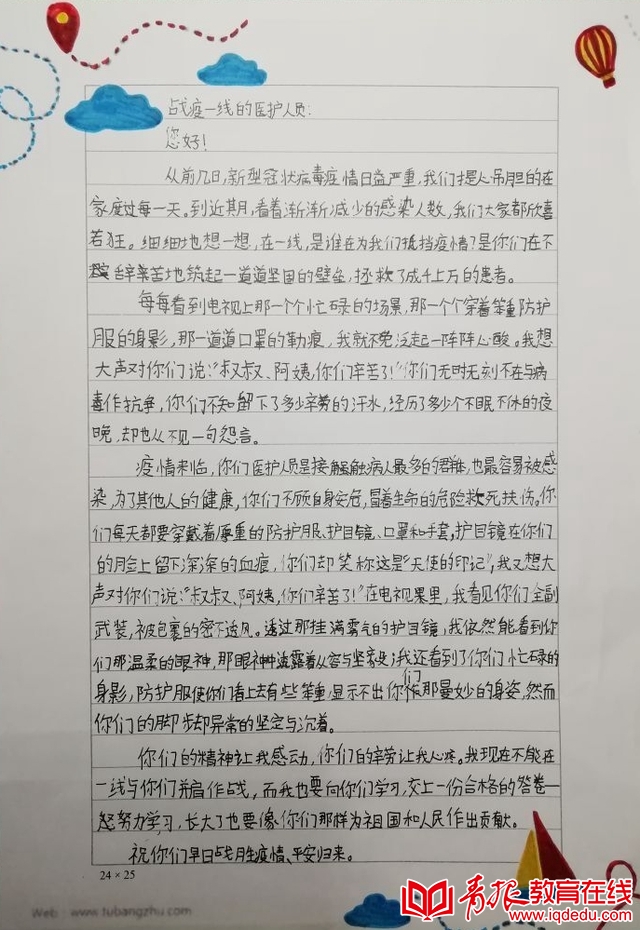 战疫一线的医护人员：
您好！
从前几日，新型冠状病毒疫情日益严重，我们提心吊胆的在
家度过每一天。到近其月，看着渐渐减少的感染人数，我们大家都欣喜
若狂。细细地想一想，在一线，是谁在为我们抵挡疫情？是你们在不
辞辛苦地筑起一道道坚固的壁垒，拯救了成千上万的患者。
每每看到电视上那一个个忙碌的场景，那一个个穿着笨重防护
服的身影，那一道道口罩的勒痕，我就不免泛起一阵阵心酸。我想
大声对你们说：“叔叔、阿姨，你们辛苦了！”你们无时无刻不在与病
毒作抗争，你们不知留下了多少辛劳的汗水，经历了多少个不眠不休的夜
晚，却也从不见一句怨言。
疫情来临，你们医护人员是接触病人最多的群难，也最容易被感
染，为了其他人的健康，你们不顾自身安危，冒着生命的危险救死扶伤。你
们每天都要穿戴着厚重的防护服、护目镜、口罩和手套，护目镜在你们
的脸上留下深深的血痕，你们却笑称这是“天使的印记”，我又想大
声对你们说：“叔叔、阿姨，你们辛苦了！”在电视里，我看见你们全副
武装，被包裹的密不透风。透过那挂满雾气的护目镜，我依然能看到你
们那温柔的眼神，那眼神中流露着从容与坚定；我还看到了你们忙碌的
身影，防护服使你们看上去有些笨重，显示不出你们那曼妙的身姿，然而
你们的脚步却异常的坚定与沉着。
你们的精神让我感动，你们的辛劳让我心疼。我现在不能在
一线与你们并肩作战，而我也要向你们学习，交上一份合格的答卷—
努力学习，长大了也要像你们那样为祖国和人民作出贡献。
祝你们早日战胜疫情、平安归来。
24×25
Web：www.tubangzhu.com
青报教育在线
www.iqdedu.com